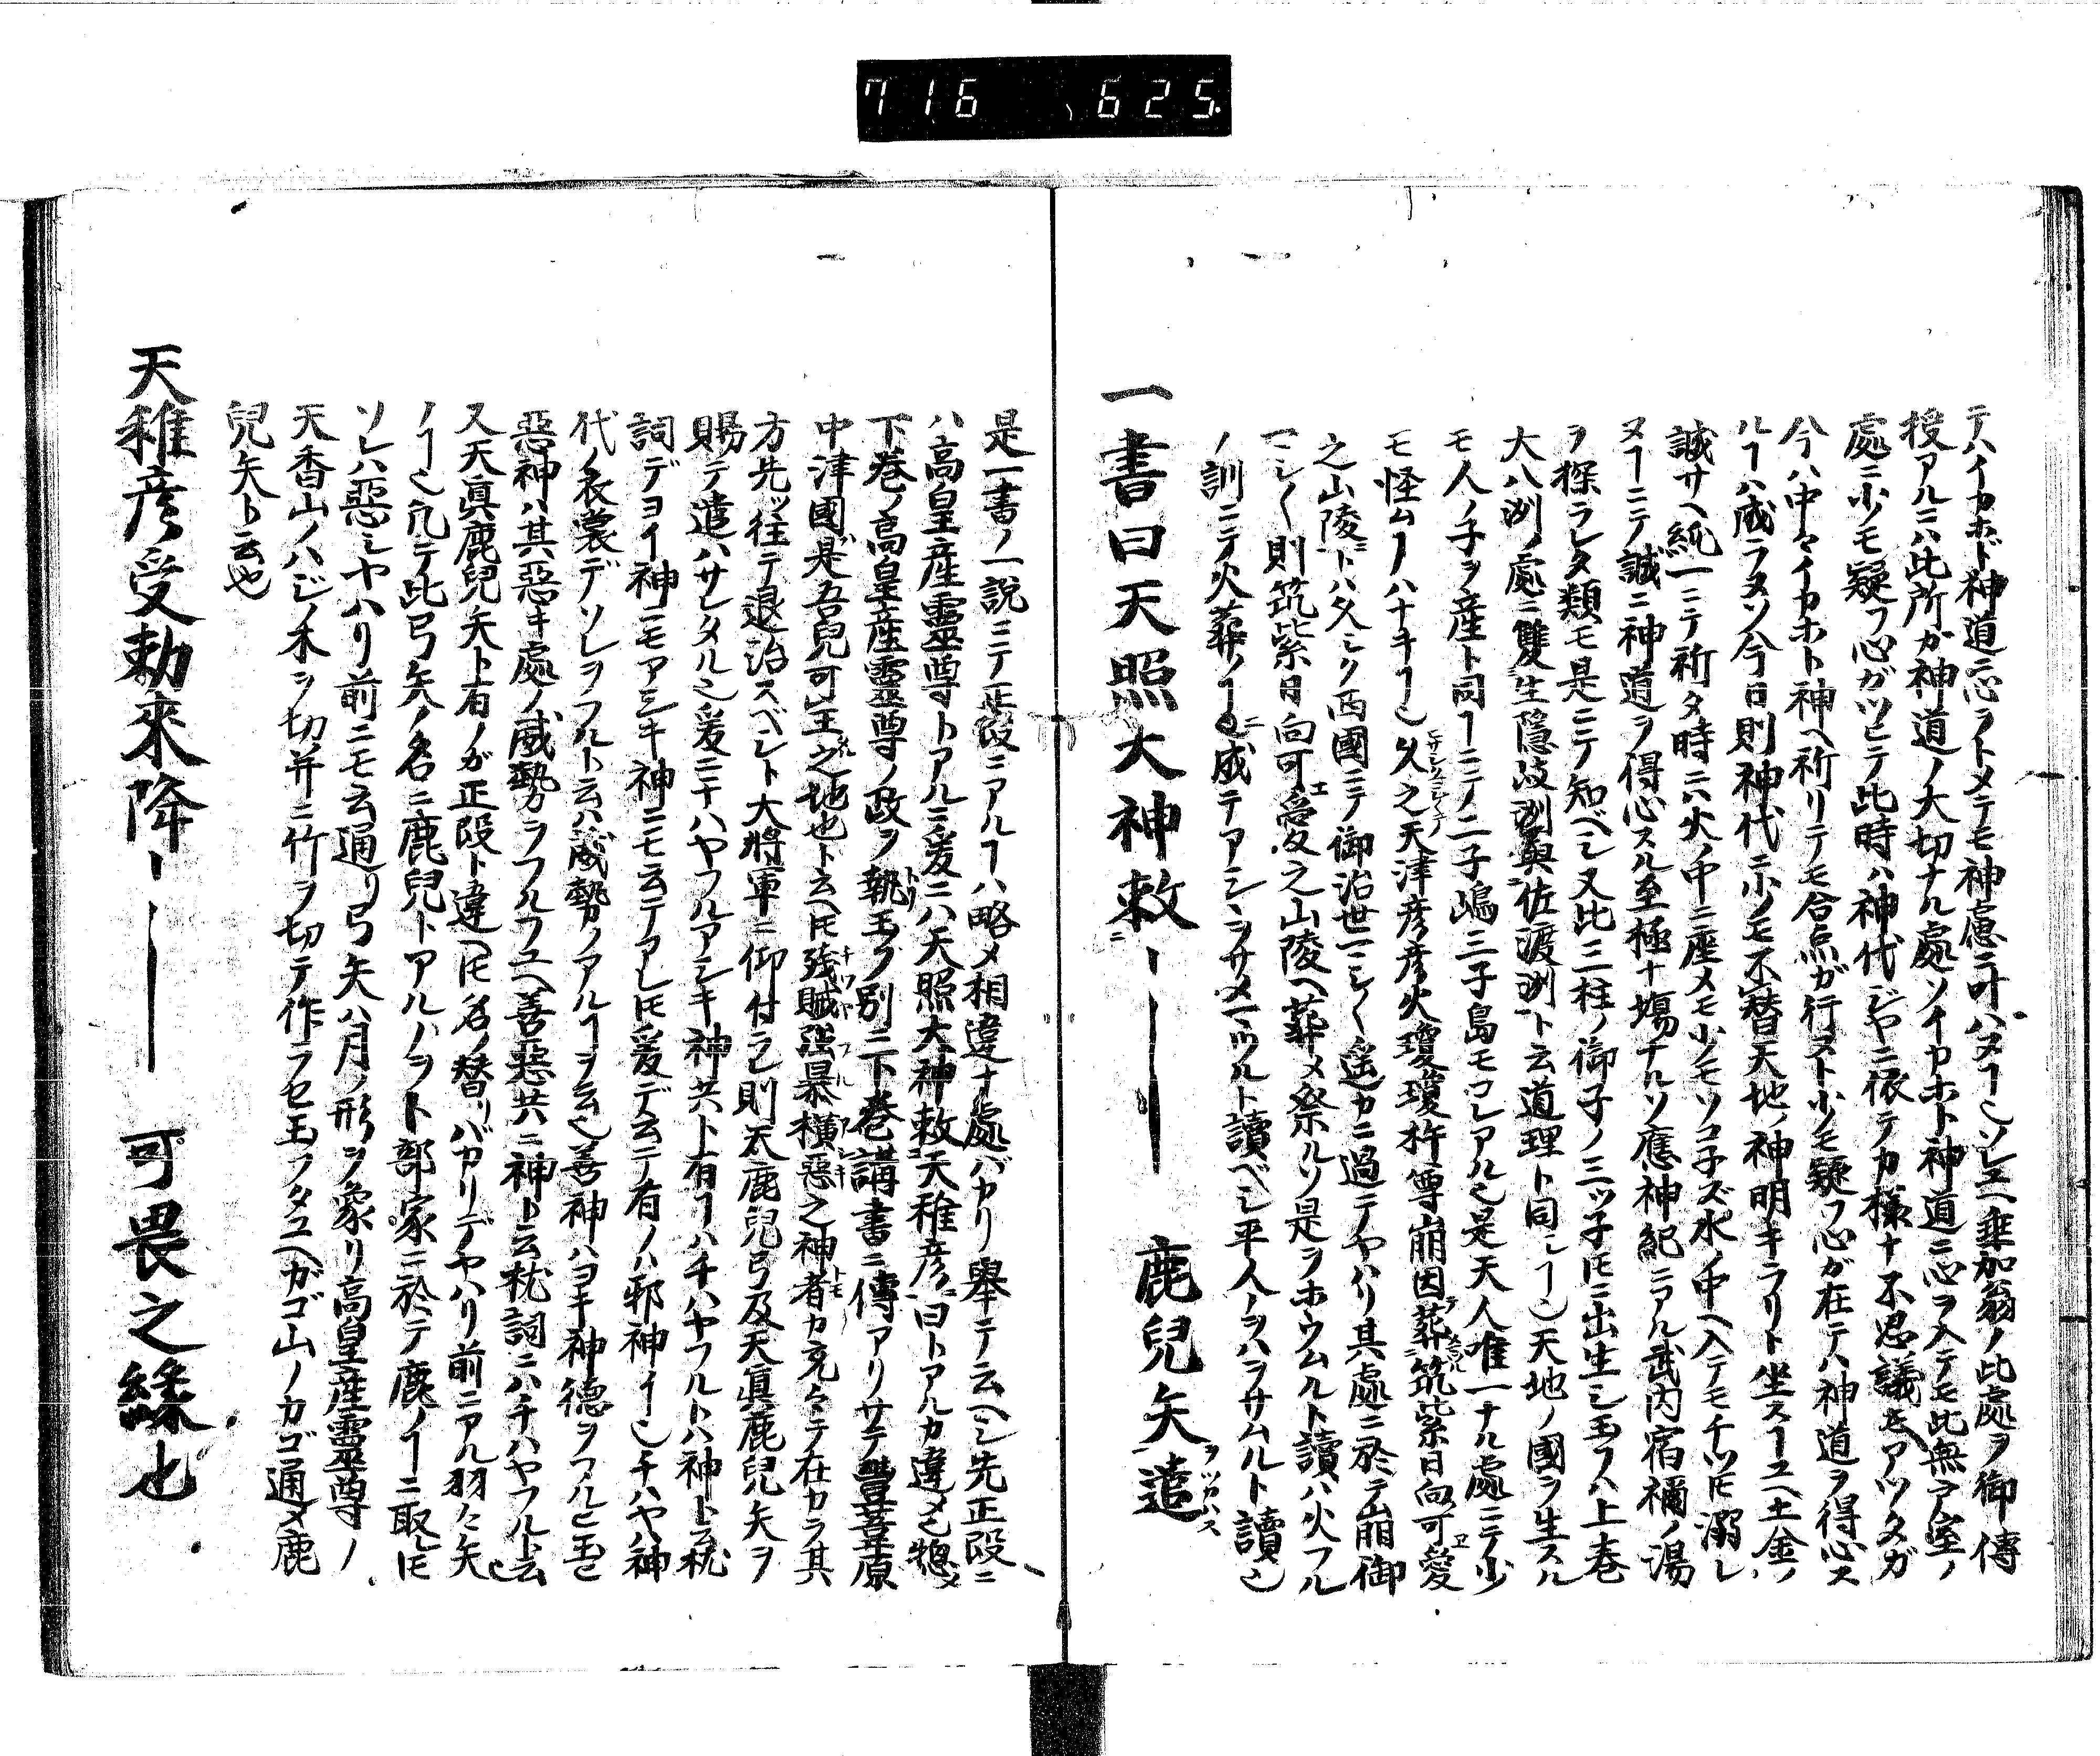 716 625
テハイカホド神道ニ志ラトメテモ神慮ニ叶ハヌヿ也ソレユヘ垂加翁ノ此處ヲ御傳
授アルニハ此所ガ神道ノ大切ナル處ソイカホト神道ニ心ヲ入テモ此無戸室ノ
處ニ少ノモ疑フ心ガツヒテ此時ハ神代ジヤニ依テカ様ナ不思議モアツタガ
今ハ中々イカホト神ヘ祈リテモ合点ガ行ヌト少モ疑フ心ガ在テハ神道ヲ得心ス
ルヿハ成ラヌソ今日則神代ニ少ノモ不替天地ノ神明キラリト坐スヿユヘ土金ノ
誠サヘ純一ニテ祈タ時ニハ火ノ中ニ座メモ少ノモソコ子ズ水ノ中ヘ入テモチツ𪜈溺レ
ヌヿニテノ誠ニ神道ヲ得心スル至極ナ塲ナルソ應神紀ニアル武内宿禰ノ湯
ヲ探ラレタ類モ是ニテ知ベシ又比三柱ノ御子ノ三ツ子𪜈ニ出生シ玉フハ上巻
大八洲ノ處ニ雙生隠岐洲與佐渡洲ト云道理ト同シヿ也天地ノ國ヲ生スル
モ人ノ子ヲ産ト同ヿニテノ二子嶋三子島モコレアル也是天人唯一ナル處ニテ少
モ怪ムヿハナキヿ也久之天津彦彦火瓊瓊杵尊崩因葬筑紫日向可愛
之山陵トハ久シク西國ニテ御治世マシく遥カニ過テヤハリ其處ニ於テ崩御
マシく則筑紫日向可愛之山陵ヘ葬メ祭ルソ是ヲホウムルト讀ハ火フル
ノ訓ニテ火葬ノヿニ成テアシシサメマツルト讀ベシ平人ノヲハヲサムルト讀也
一書曰天照大神敕ーーー鹿兒矢遣
是一書ノ一説ニテ正段ニアルヿハ略メ相違ナ處バカリ舉テ云ヘシ先正段ニ
ハ高皇産靈尊トアルニ爰ニハ天照大神敕天稚彦曰トアルカ違メ也惣メ
下巻ノ高皇産靈尊ノ政ヲ執玉フ別ニ下巻講書ニ傳アリサテ豐葦原
中津國是吾兒可王之地也ト云ヘ𪜈殘賊強暴横惡之神者カ充々テ在カラ其
方先ッ往テ退治スベシト大將軍ニ仰付ラレ則天鹿兒弓及天眞鹿兒矢ヲ
賜テ遣ハサレタル也爰ニナハヤフルアシキ神共ト有ヿハチハヤフルトハ神ト云枕
詞デヨイ神ニモアシキ神ニモ云テアレ𪜈爰デ云テ有ノハ邪神イ也チハヤハ神
代ノ衣裳デソレヲフルト云ハ威勢ノアルヿヲ云也善神ハヨキ神徳ヲフルヒ玉ヒ
惡神ハ其惡キ處ノ威勢ヲフルフユヘ善惡共ニ神ト云枕詞ニハチハヤフルト云也
又天眞鹿兒矢ト有ノガ正段ト違ヘ𪜈名ノ替リバカリデヤハリ前ニアル羽々矢
ノヿ也凢テ此弓矢ノ名ニ鹿兒トアルノヲト部家ニ於テ鹿ノヿニ取𪜈
ソレハ惡シヤハリ前ニモ云通リ弓矢ハ月ノ形ヲ象リ高皇産靈尊ノ
天香山ノハジノ木ヲ切并ニ竹ヲ切テ作ラセ玉フタユヘガゴ山ノカゴ通メ鹿
兒矢ト云也
天稚彦受勅來降ーーー可畏之縁也